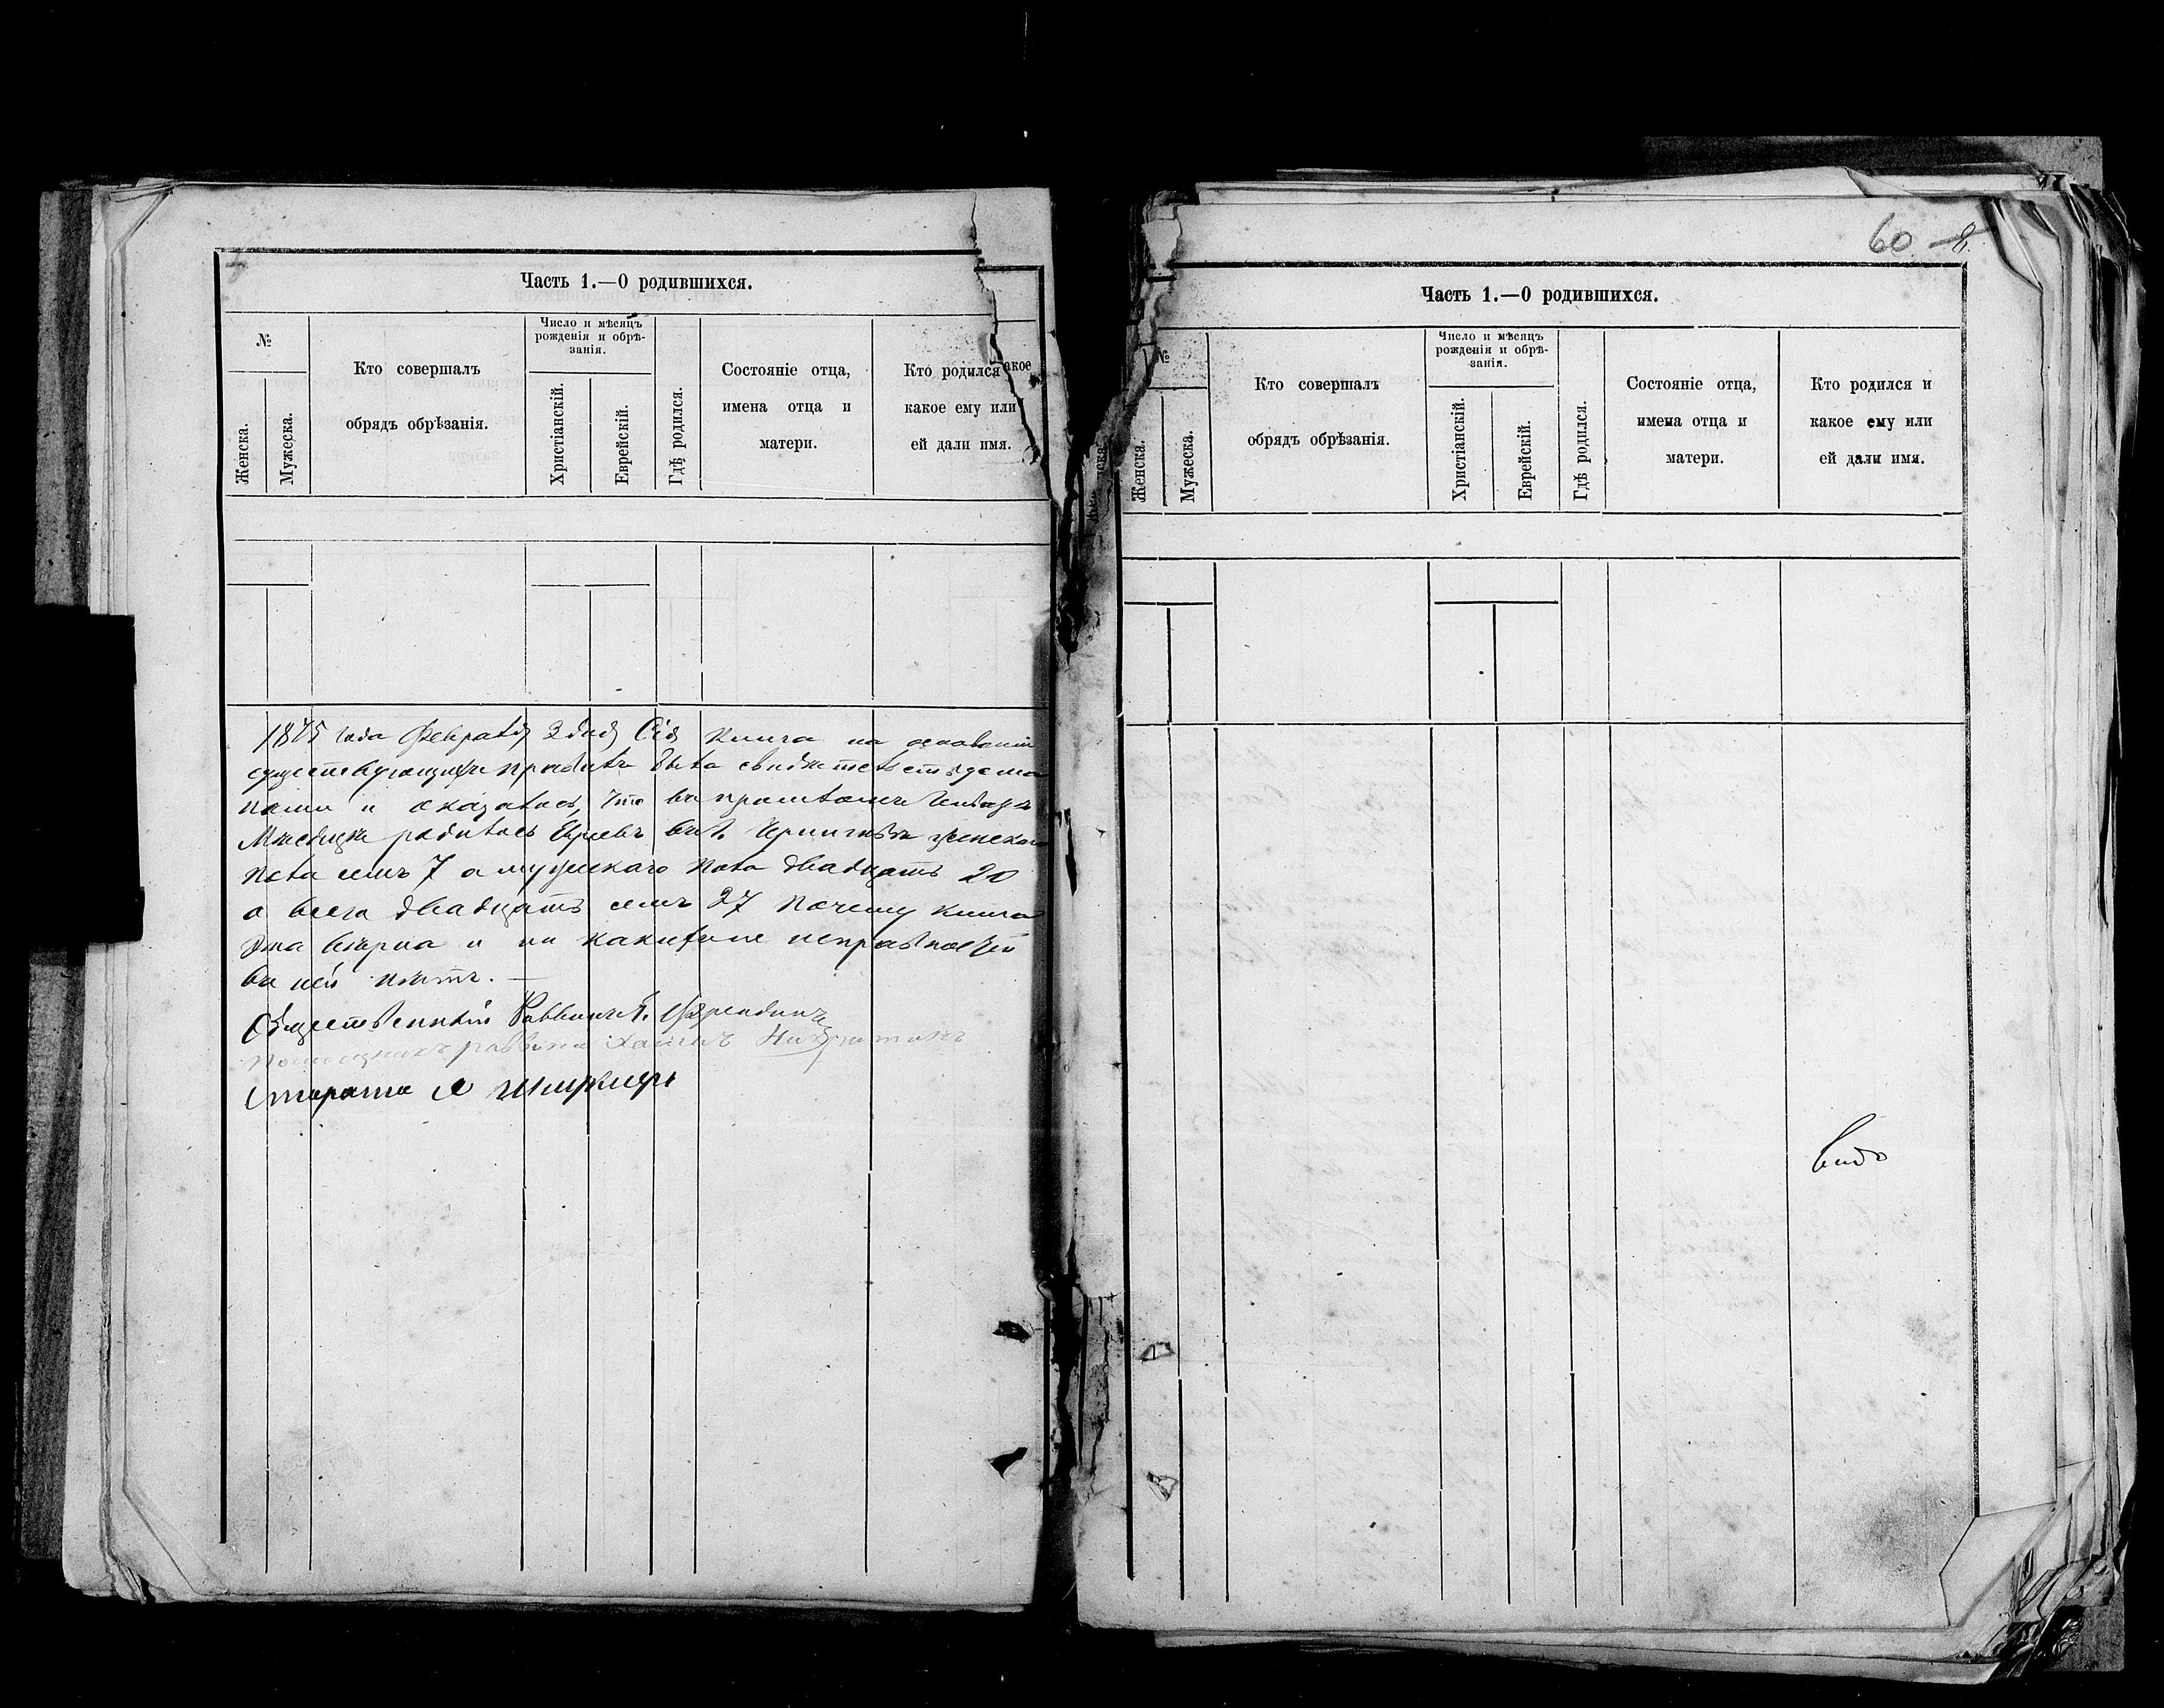 Часть 1.—О родившихся.
№
Женска.
Мужеска.
Кто совершалъ
обрядъ обрѣзанія.
Число и мѣсяцъ
рожденія и обрѣ-
занія.
Христіанскій.
Еврейскій.
Гдѣ родился.
Состояніе отца,
имена отца и
матери.
Кто родился
какое ему или
ей дали имя.
акое
1875 года Февраля 3 дня Сія книга на основаніи
существующихъ правилъ была свидѣтельствуема
нами и оказалось, что въ прошломъ Январѣ
Мѣсяцѣ родилось Евреевъ въ г. Черниговѣ женскаго
пола семь 7 а мужескаго пола двадцать 20
а всего двадцать семь 27 почему книга
эта вѣрна и ни какихъ неправностей
въ ней нѣтъ. —
Общественный Раввинъ
раввина
Староста
60 8.
Часть 1.—О родившихся.
№
Женска.
Мужеска.
Кто совершалъ
обрядъ обрѣзанія.
Число и мѣсяцъ
рожденія и обрѣ-
занія.
Христіанскій.
Еврейскій.
Гдѣ родился.
Состояніе отца,
имена отца и
матери.
Кто родился и
какое ему или
ей дали имя.